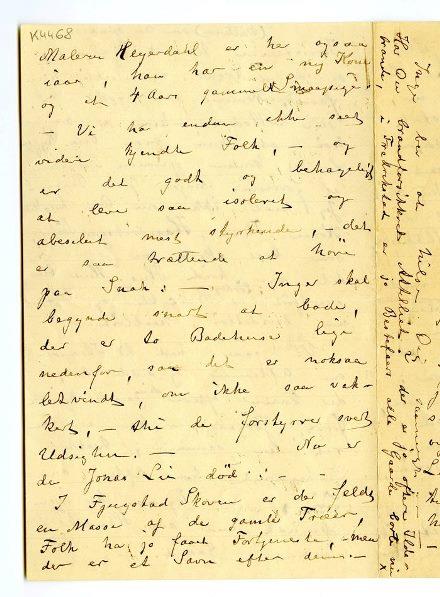 K4468
Maleren Heyerdahl er her ogsaa
iaar, han har en ny Kone
og et 4 Aars gammelt Smaapige.
– Vi har endnu ikke seet
videre kjendte Folk, – og
er det godt og behageligt
at leve saa isoleret og
absolut mest styrkende, – det
er saa trættende at höre
paa Snak. – Inger skal
begynde snart at bade,
der er to Badehuse lige
nedenfor, saa det er noksaa
letvindt, om ikke saa vak-
kert, – thi de forstyrrer svært
Udsigten. – Nu er
da Jonas Lie död! –
I Fjugstad Skoven er der feldt
en Masse af de gamle Træer,
Folk har jo faaet Fortjeneste, – men
der er et Savn efter dem. –
Inger ber at hilse Dig
Har Du brandforsikkret Atteliet? der er jo ofte Ilde-
brande,
i Fredrikstad er jo Bestefars alle Gaarde borte nu
x